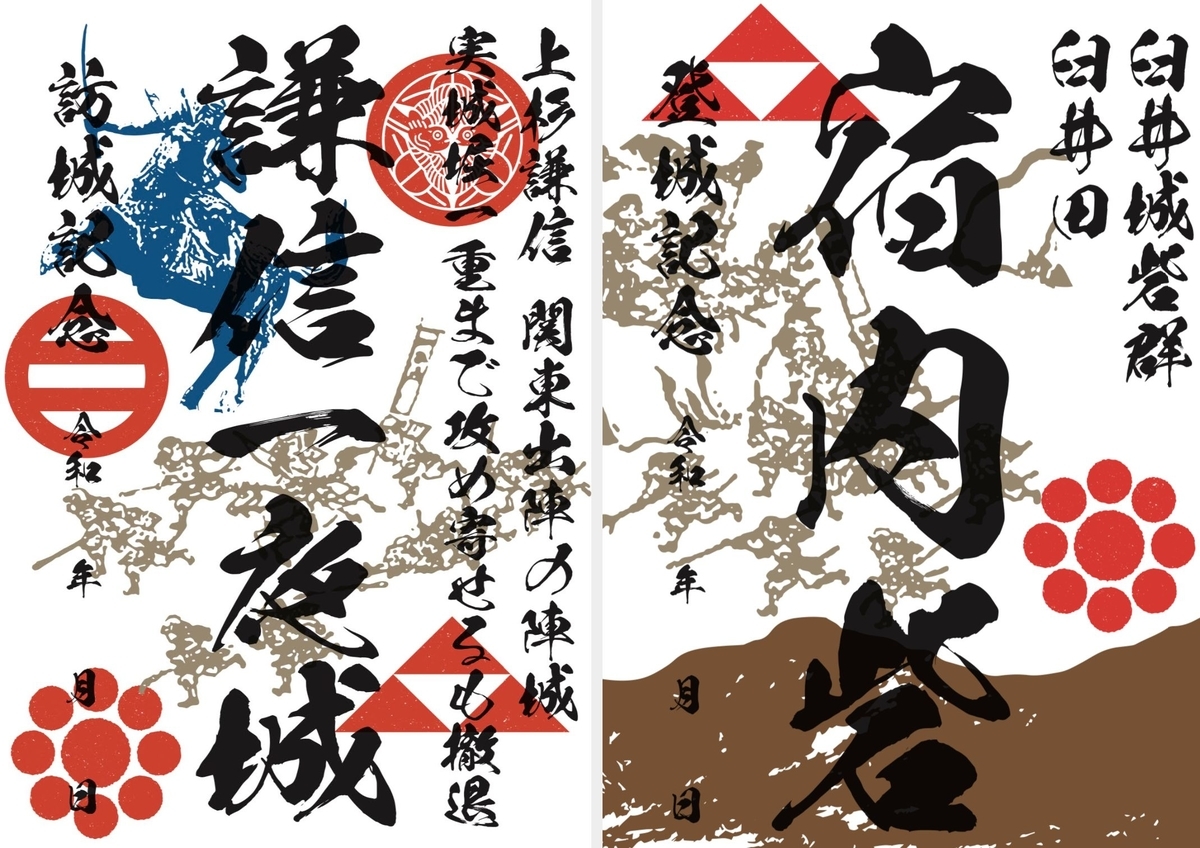 上杉謙信 関東出陣の陣城
実城堀一重まで攻め寄せるも撤退
謙信一夜城
訪城記念 令和 年 月 日
臼井城砦群
臼井田
宿内砦
登城記念 令和 年 月 日